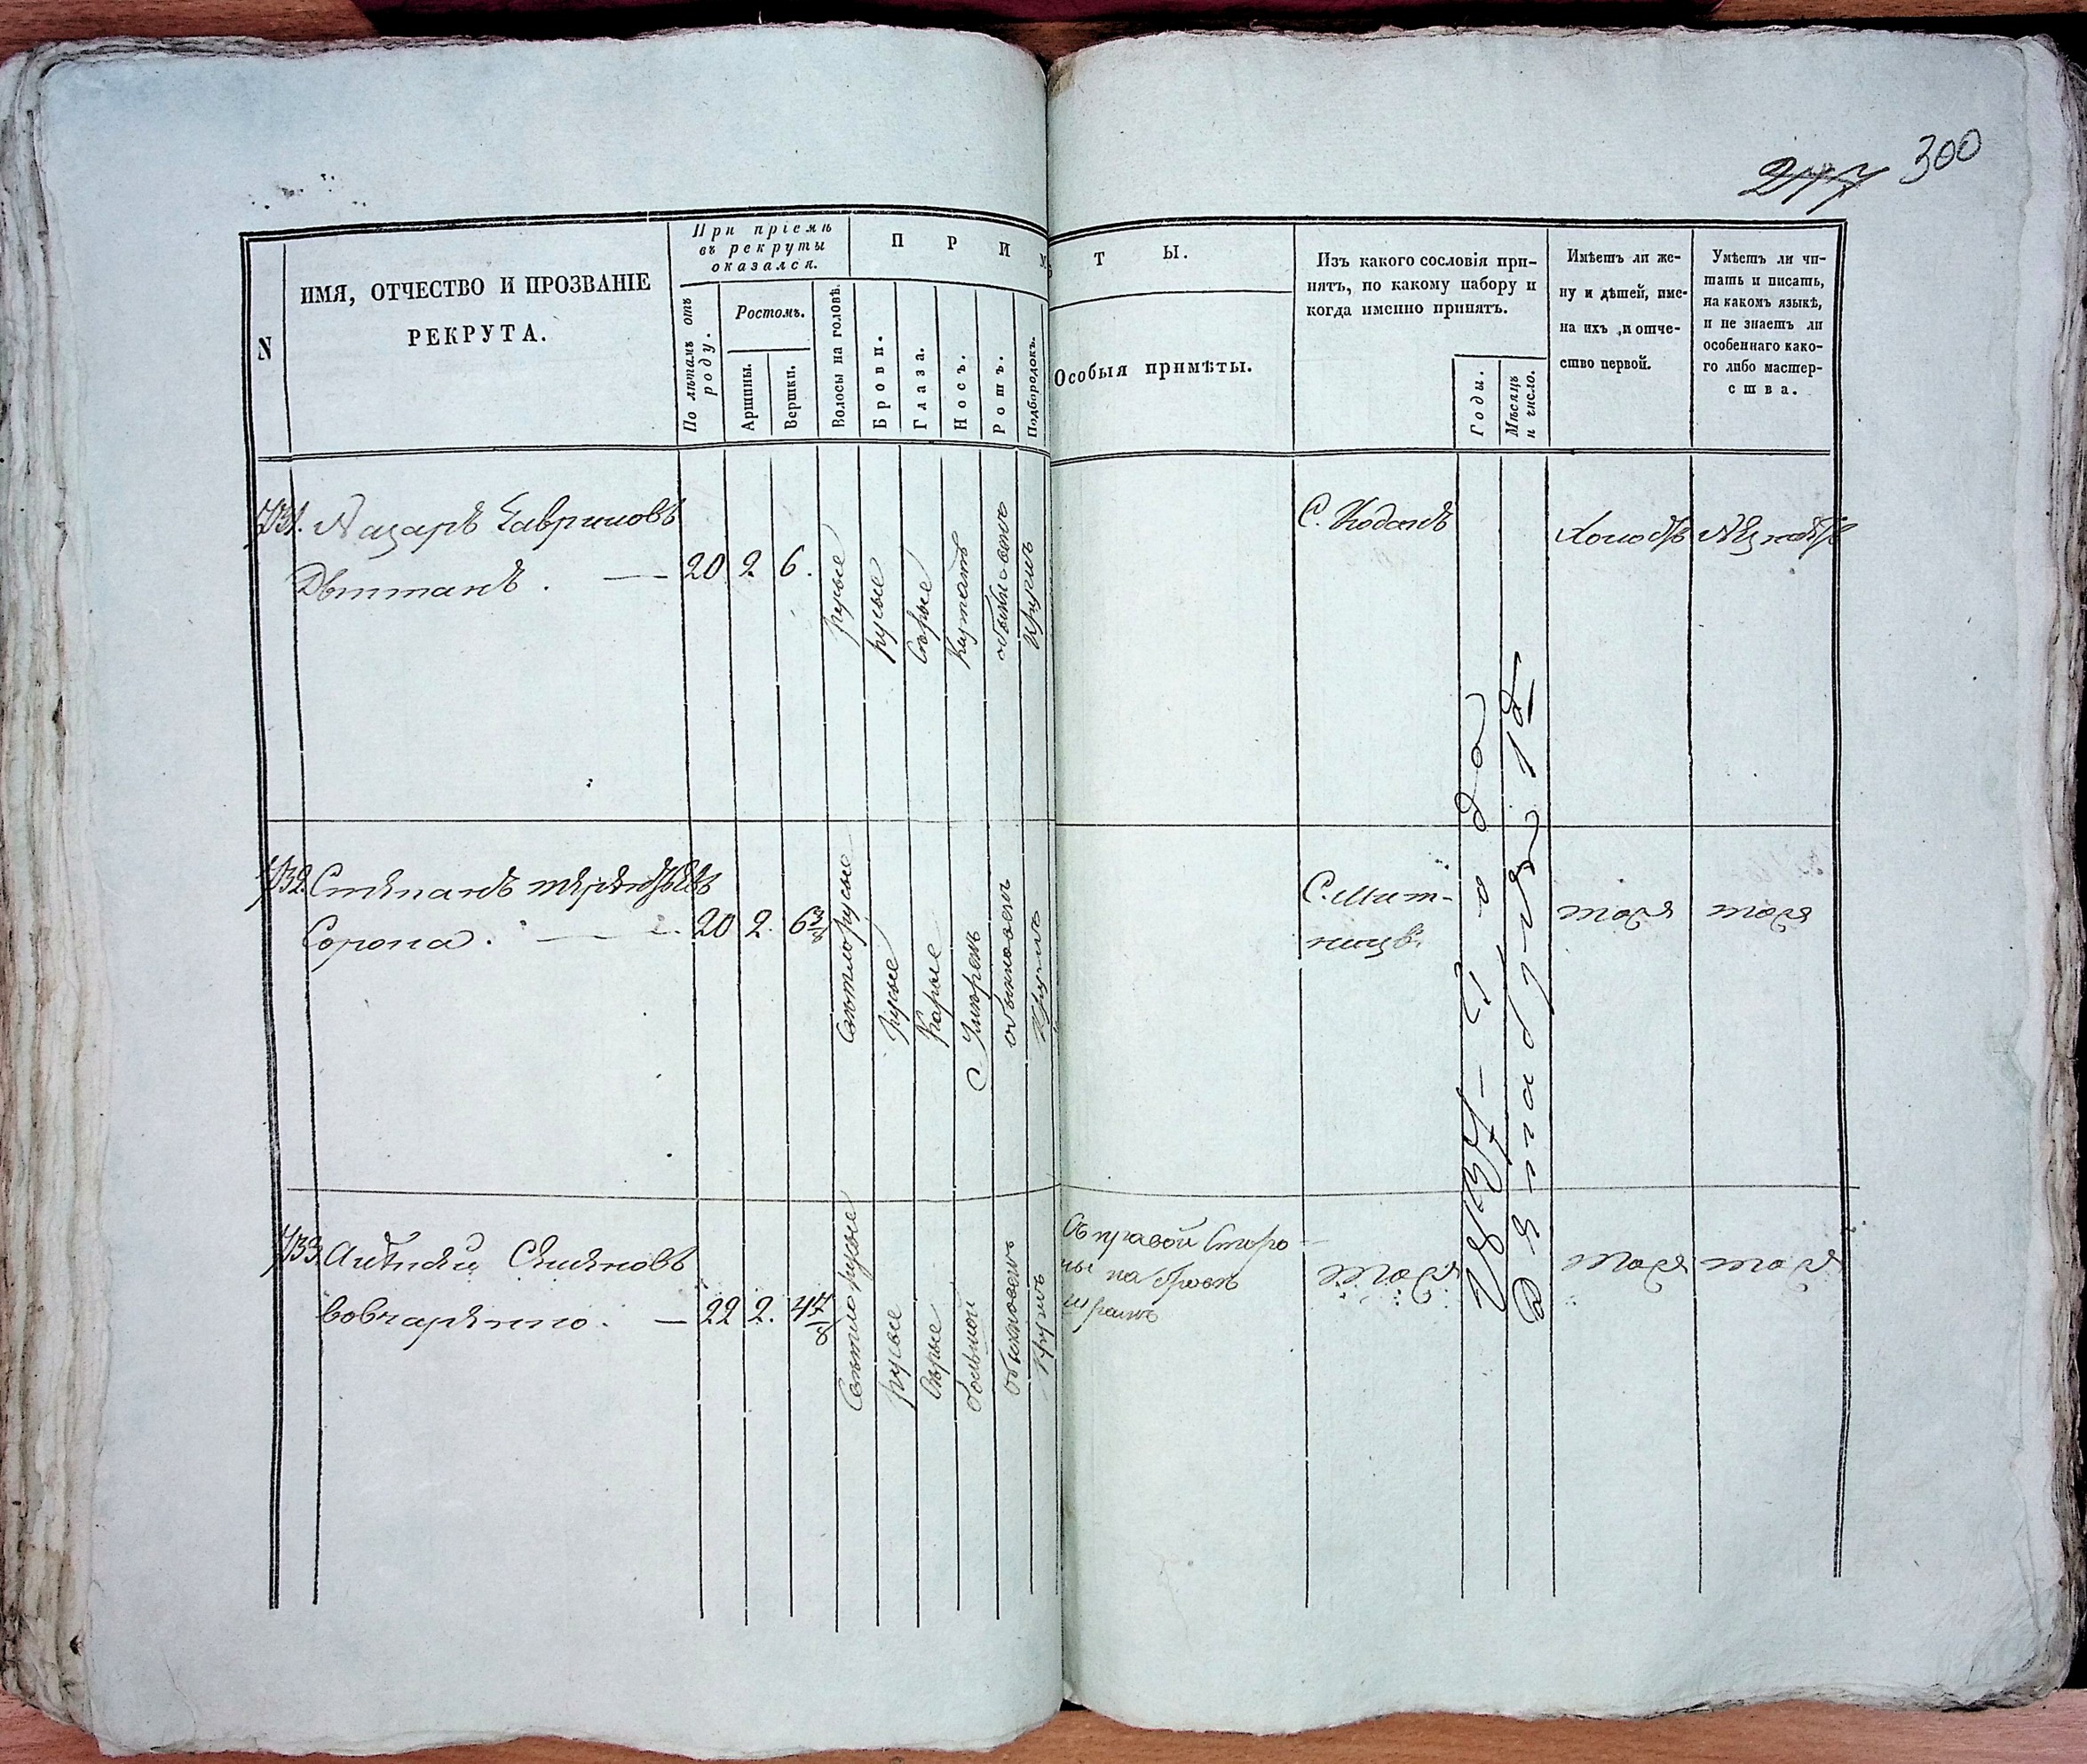 277 300
N
ИМЯ, ОТЧЕСТВО И ПРОЗВАНІЕ
РЕКРУТА.
При пріемѣ
въ рекруты
оказался.
По лѣтамъ отъ
роду.
Ростомъ.
Аршины.
Вершки.
П Р И М Ѣ Т Ы.
Волосы на головѣ.
Брови.
Глаза.
Носъ.
Ротъ.
Подбородокъ.
Особыя примѣты.
Изъ какого сословія при-
нятъ, по какому набору и
когда именно принятъ.
Годы.
Мѣсяцъ
и число.
Имѣетъ ли же-
ну и дѣтей, име-
на ихъ и отче-
ство первой.
Умѣетъ ли чи-
тать и писать,
на какомъ языкѣ,
и не знаетъ ли
особеннаго како-
го либо мастер-
ства.
731. Назаръ Гавриловъ
20 2 6. русые русые Сѣрые обыкновенъ Круглъ
С. Кодакъ Холостъ
732. Степанъ
Сорока. 20 2. 6 3/8 Свѣтлорусые Русые Карые Умѣренъ обыкновенъ Круглъ
С. Мит-
тоже тоже
733.
Вовчаренко. 22 2. 4 7/8 Свѣтлорусые русые Сѣрые большой обыкновенъ Круглъ
Съ правой Сторо-
ны на брови
шрамъ
тоже тоже тоже
года
12